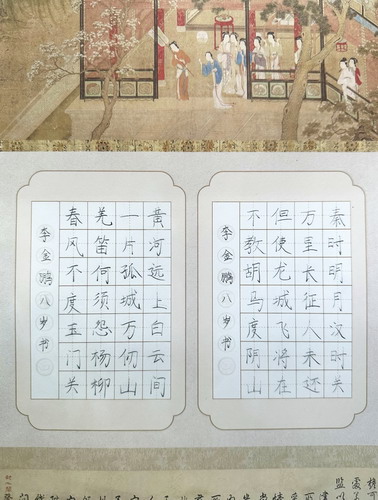 秦时明月汉时关
万里长征人未还
但使龙城飞将在
不教胡马度阴山
李金鹏八岁书
黄河远上白云间
一片孤城万仞山
羌笛何须怨杨柳
春风不度玉门关
李金鹏八岁书